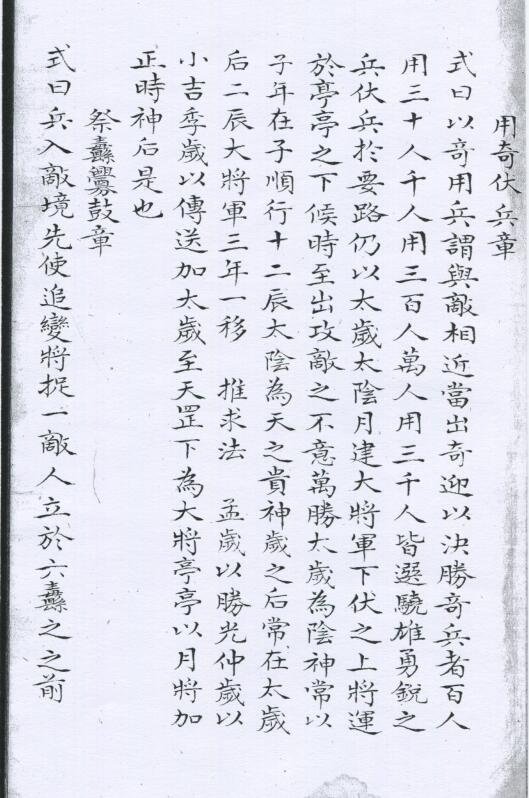 用奇伏兵章
式曰以奇用兵謂與敵相近當出奇迎以決勝奇兵者百人
用三十人千人用三百人萬人用三千人皆選驍雄勇銳之
兵伏兵於要路仍以太歲太陰月建大將軍下伏之上將運
於亭亭之下候時至出攻敵之不意萬勝太歲為陰神常以
子年在子順行十二辰太陰為天之貴神歲之后常在太歲
后二辰大將軍三年一移 推求法 孟歲以勝光仲歲以
小吉季歲以傳送加太歲至天罡下為大將亭亭以月將加
正時神后是也
祭纛釁鼓章
式曰兵入敵境先使追變將捉一敵人立於六纛之之前